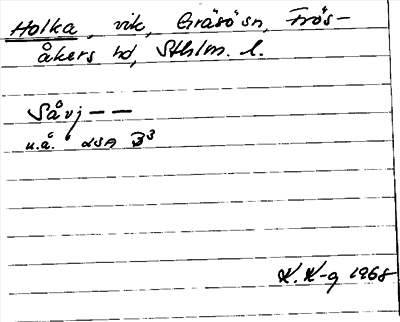 Holka, vik, Gräsö sn, Frös-
åkers hd, Sthlm. l.
Såvj – –
u.å. LSA B3
K. K-g 1968